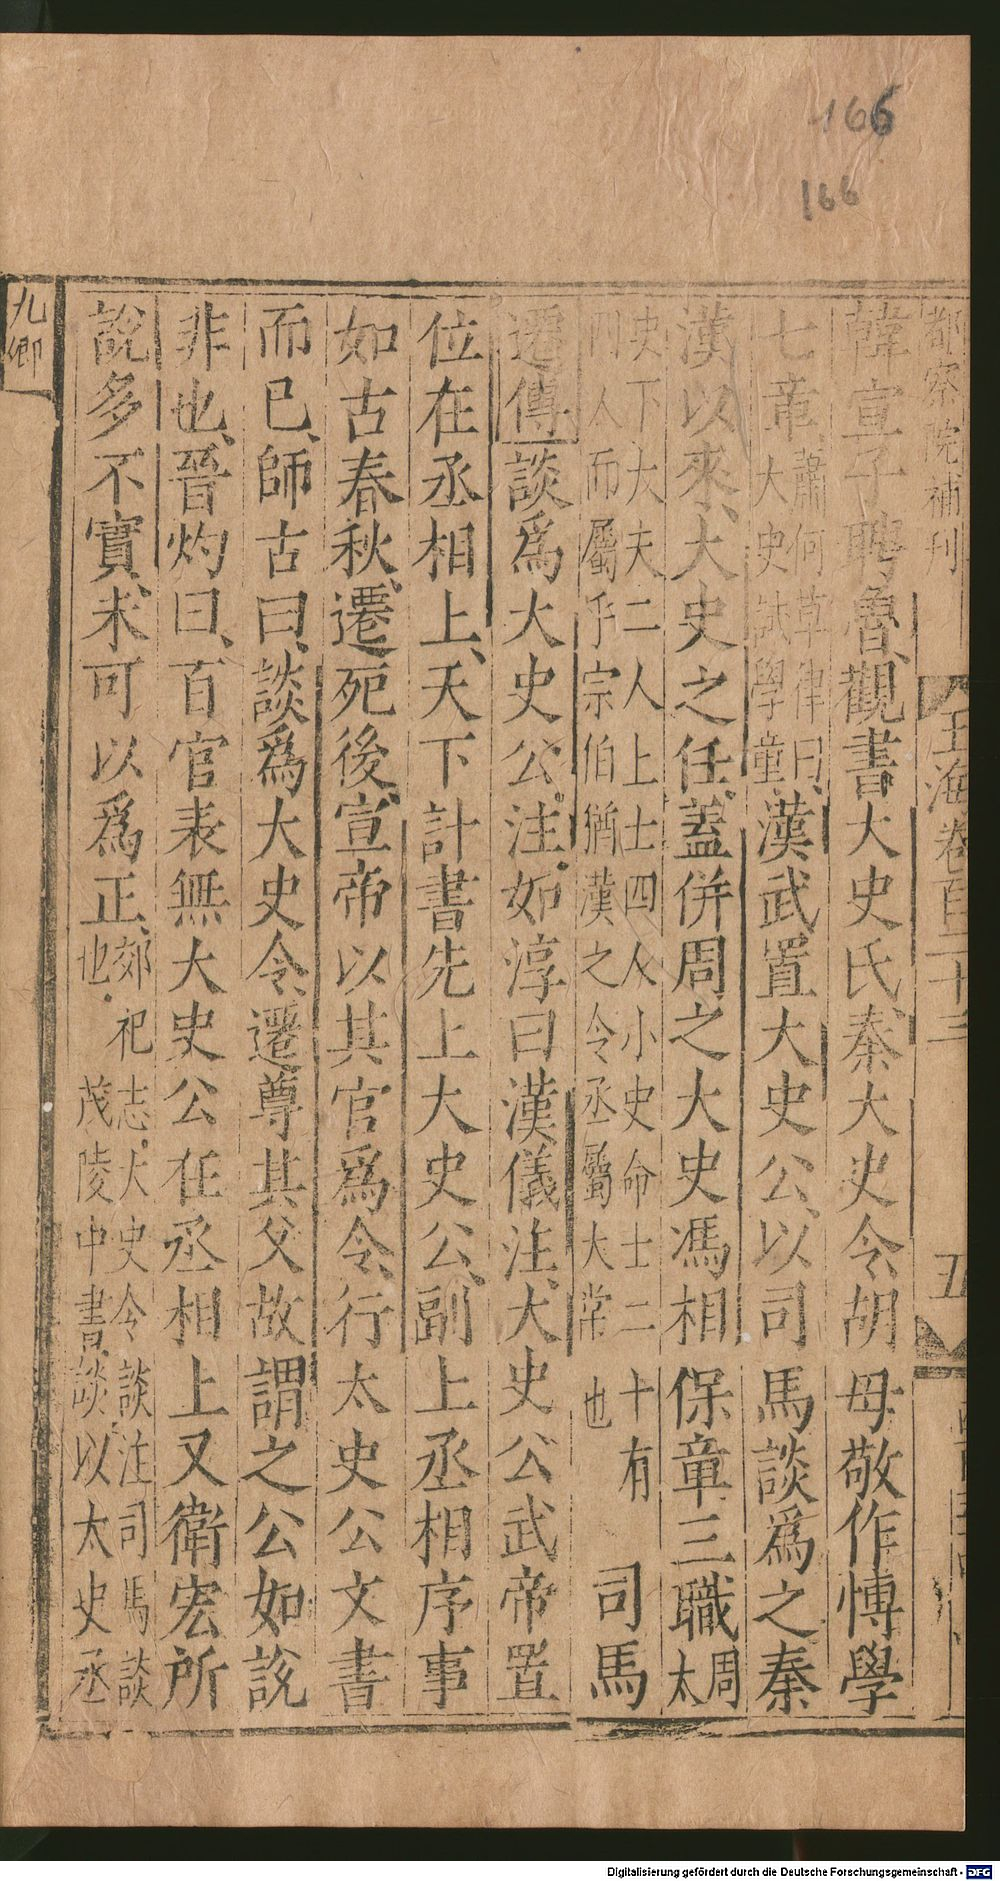 166
166
都察院補刊
玉海卷百二十三
五
韓宣子聘魯、觀書大史氏、秦大史令胡母敬作愽學
七章、蕭何草律曰、大史試學童、漢武置大史公、以司馬談爲之秦
漢以來、大史之任、蓋併周之大史馮相保章三職周太
史下大夫二人上士四人小史命士二十有四人而屬乎宗伯猶漢之令丞屬大常也司馬
遷傳談爲大史公。注。如淳曰漢儀注、大史公武帝置
位在丞相上、天下計書先上大史公、副上丞相序事
如古春秋、遷死後、宣帝以其官爲令、行太史公文書
而已、師古曰、談爲大史令、遷尊其父故謂之公如說
非也、晉灼曰、百官表無大史公在丞相上又衛宏所
說多不實、未可以爲正、郊祀志。大史令談注司馬談也。茂陵中書、談以太史丞
九卿
Digitalisierung gefördert durch die Deutsche Forschungsgemeinschaft - DFG